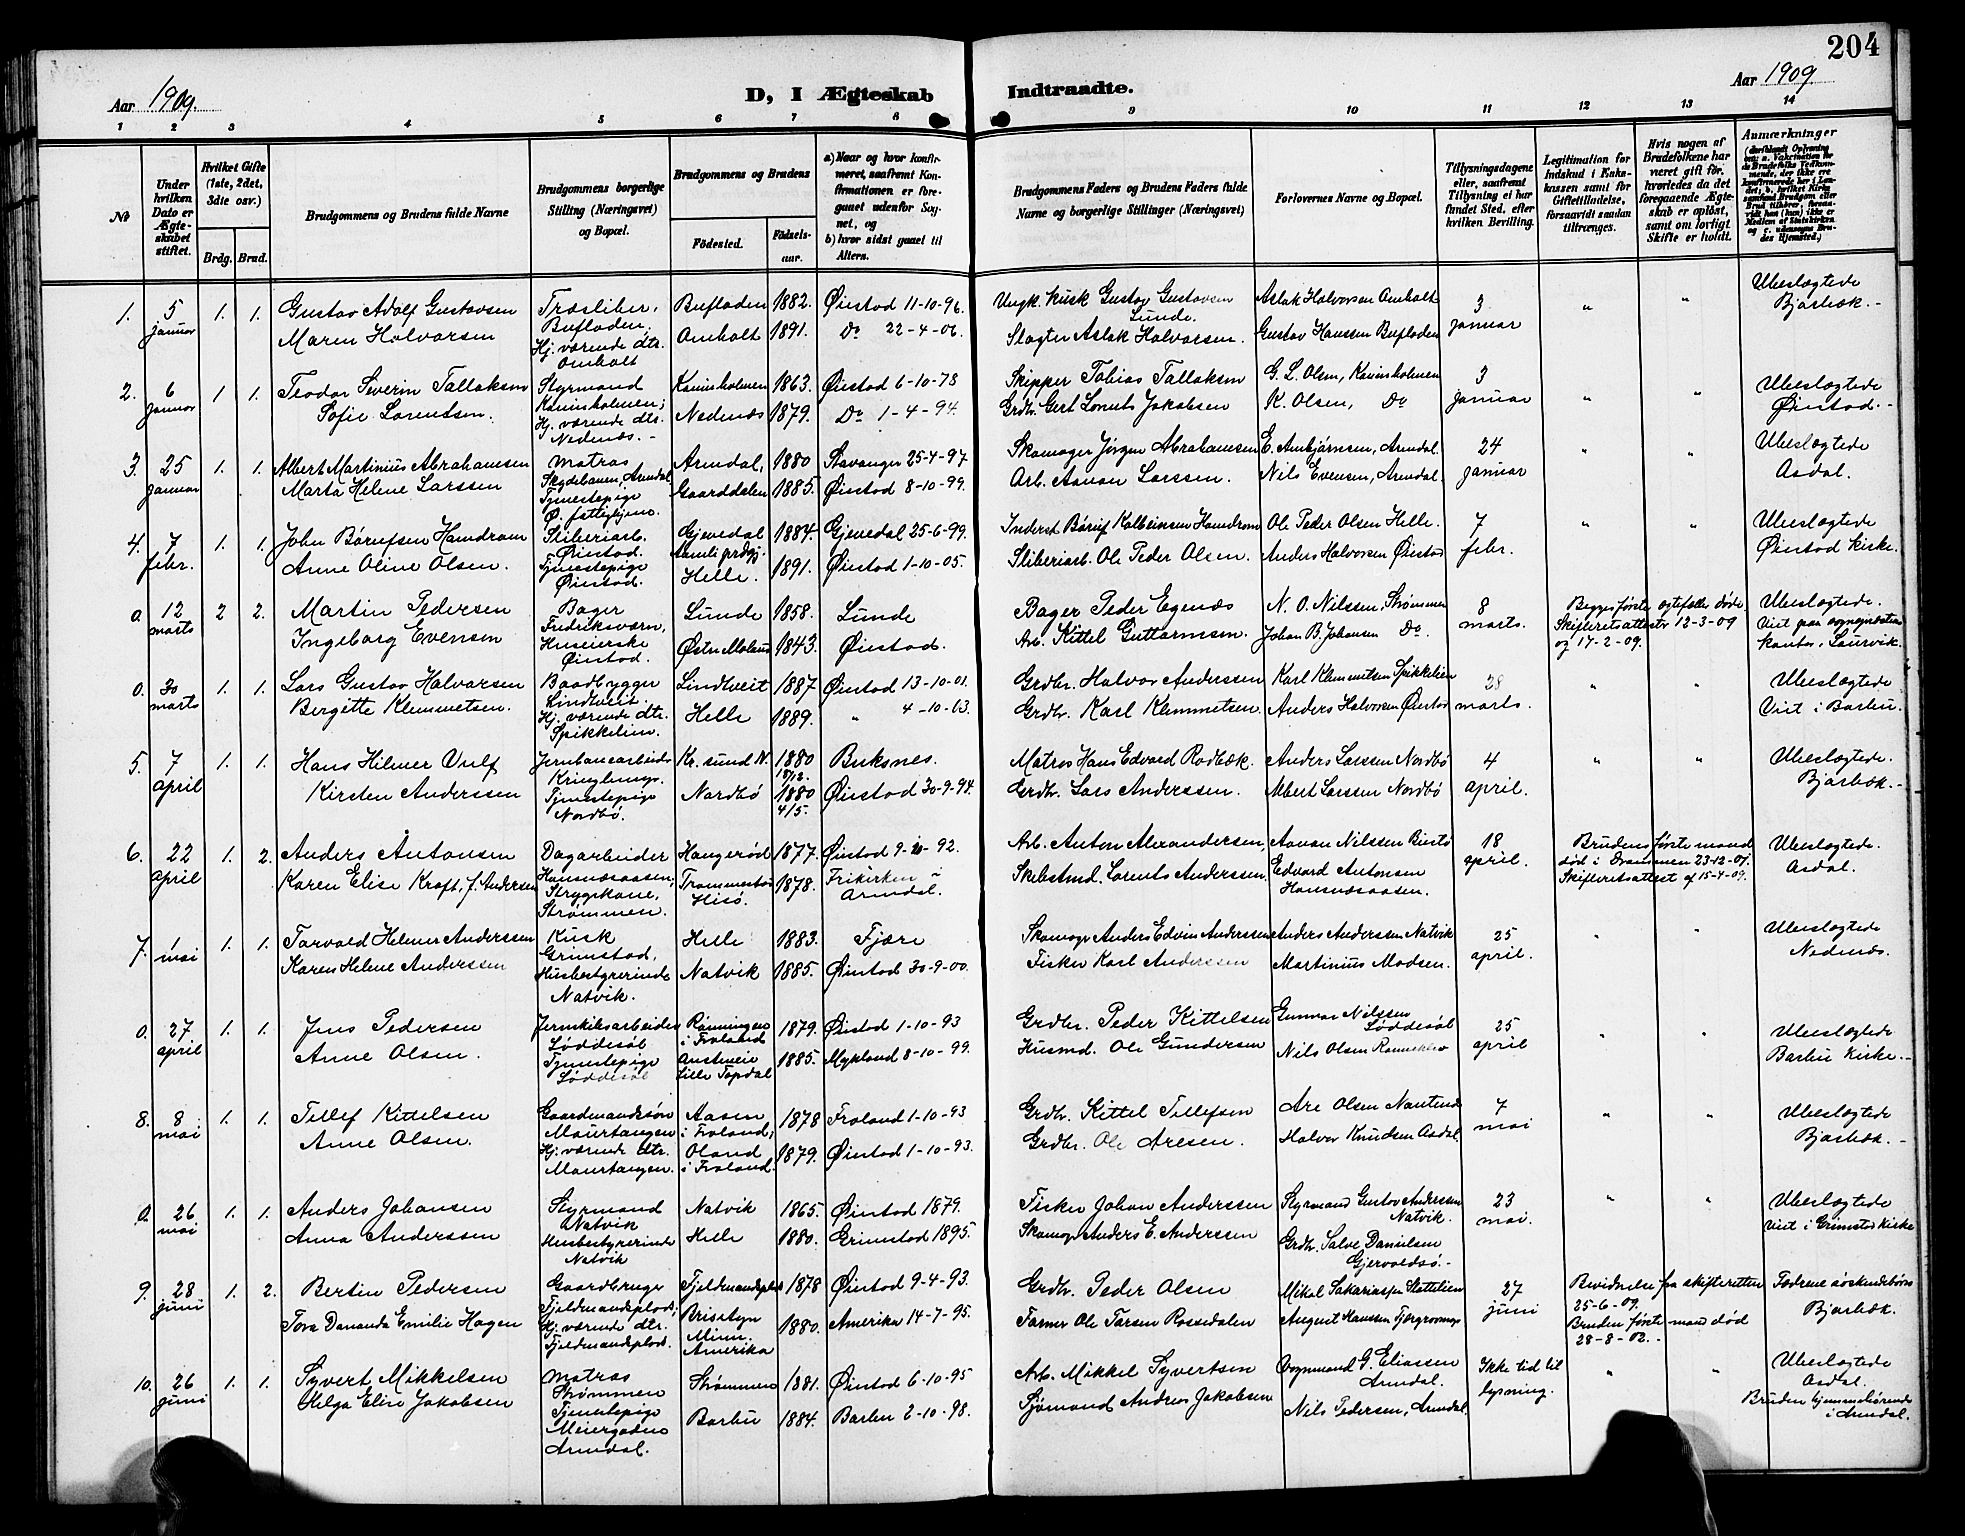 204
Aar 1909.
D, I Ægteskab Indtraadte.
Aar 1909.
1 2 3 4 5 6 7 8 9 10 11 12 13 14
Nº
Under hvilken Dato er Ægteskabet stiftet.
Hvilket Gifte (1ste, 2det, 3die osv.)
Brdg. Brud.
Brudgommens og Brudens fulde Navne
Brudgommens borgerlige Stilling (Næringsvei) og Bopæl.
Brudgommens og Brudens
Fødested. Fødselsaar.
a) Naar og hvor konfirmeret, saafremt Konfirmationen er foregaaet udenfor Sognet, og
b) hvor sidst gaaet til Alters.
Brudgommens Faders og Brudens Faders fulde Navne og borgerlige Stillinger (Næringsvei)
Forlovernes Navne og Bopæl.
Tillysningsdagene eller, saafremt Tillysning ei har fundet Sted, efter hvilken Bevilling.
Legitimation for Indskud i Enkekassen samt for Giftetilladelse, forsaavidt saadan tiltrænges.
Hvis nogen af Brudefolkene har været gift før, hvorledes da det foregaaende Ægteskab er opløst, samt om lovligt Skifte er holdt.
Anmærkninger
1. 5 januar 1. 1.
Gustav Adolf Gustavsen
Maren Halvorsen
Træsliber, Bufladen; Hj. værende dtr. Omholt
Bufladen 1882. Øiestad 11-10-96.
Omholt 1891. Do 22-4-06.
Ungk. Kusk Gustav Gustavsen Lunde.
Slagter Aslak Halvorsen.
Aslak Halvorsen Omholt
Gustav Hanssen Bufladen
3 januar " "
Ubeslægtede Bjorbæk.-
2. 6 januar 1 1.
Teodor Severin Tallaksen
Sofie Lorentsen.
Styrmand Kaninholmen; Hj. værende dtr. Nedenæs.-
Kaninholmen 1863. Øiestad 6-10-78
Nedenæs 1879. Do 1-4-94.
Skipper Tobias Tallaksen
Grdbr. Gert Lorents Jakobsen
G. L. Olsen, Kaninholmen
K. Olsen, Do
3 januar " "
Ubeslægtede Øiestad.-
3. 25 januar 1. 1.
Albert Martinius Abrahamsen
Marta Helene Larssen
Matros Skydebanen, Arendal Tjenestepige Ø. fattighjem.
Arendal, 1880 Stavanger 25-4-97
Gaarddalen 1885. Øiestad 8-10-99.
Skomager Jørgen Abrahamsen
Arb. Aanon Larssen.
E. Ambjørnsen, Arendal.
Nils Evensen, Arendal.
24 januar " "
Ubeslægtede Asdal.
4. 7 febr. 1. 1.
John Børufsen Hamdrom
Anne Oline Olsen.
Sliberiarb. Øiestad. Tjenestepige Øiestad.
Gjevedal Aamli prdgj. 1884. Gjevedal 25-6-99.
Helle. 1891. Øiestad 1-10-05.
Inderst Børuf Kolbeinsen Hamdrom
Sliberiarb. Ole Peder Olsen.
Ole Peder Olsen Helle.
Anders Halvorsen Øiestad
7 febr. " "
Ubeslægtede Øiestad kirke.
0. 12 marts 2 2.
Martin Pedersen
Ingeborg Evensen
Bager Fredriksværn, Huseierske Øiestad.
Lunde 1858. Lunde
Østre Moland 1843. Øiestad.
Bager Peder Egenæs
Arb. Kittel Guttormsen.
N. O. Nilssen, Strømmen
Johan B. Johansen Do.
8 marts.
Begges første egtefæller døde
Skifteretsattester 12-3-09 og 17-2-09.
Ubeslægtede. Viet paa kontor i Laurvik.
0. 30 marts 1. 1.
Lars Gustav Halvorsen
Bergitte Klemmetsen.
Baadbygger Lindtveit. Hj. værende dtr. Spikkelien.
Lindtveit 1887 Øiestad 13-10-01.
Helle 1889. " 4-10-03.
Grdbr. Halvor Anderssen
Grdbr. Karl Klemmetsen
Karl Klemmetsen Spikkelien
Anders Halvorsen Øiestad
28 marts. " "
Ubeslægtede Viet i Barbu.
5. 7 april 1. 1.
Hans Hilmer Vulf
Kirsten Anderssen
Jernbanearbeider Tjenestepige Nordbø.
Kr.sund N. 1880 18/12. Buksnes.
Nordbø 1880 4/5. Øiestad 30-9-94.
Matros Hans Edvard Rodbæk.
Grdbr. Lars Anderssen.
Anders Larssen Nordbø
Albert Larssen Nordbø
4 april. " "
Ubeslægtede Bjorbæk.-
6. 22 april 1. 2.
Anders Antonsen
Karen Elise Kroft, f. Andersen
Dagarbeider Hamnesaasen; Strygekone, Strømmen.
Hangerød 1877. Øiestad 9-10-92.
Trommestad Hisø. 1878. Frikirken i Arendal.
Arb. Anton Alexandersen,
Skibstmd. Lorents Anderssen.
Aanon Nilssen Buestø
Edvard Antonsen Hamnesaasen.
18 april.
Brudens første mand død i Drammen 23-12-07.
Skifteretsattest af 15-4-09.
Ubeslægtede. Asdal.
7. 1 mai 1. 1.
Torvald Helmer Anderssen
Karen Helene Anderssen
Kusk Grimstad, Husbestyrerinde Natvik.
Helle 1883. Fjære
Natvik 1885. Øiestad 30-9-00.
Skomager Anders Edvin Anderssen
Fisker Karl Anderssen
Anders Anderssen Natvik
Martinius Madsen.
25 april. " "
Ubeslægtede Nedenæs.
0. 27 april 1. 1.
Jens Pedersen
Anne Olsen.
Jernkilsarbeider Løddesøl Tjenestepige Løddesøl
Rønningen i Froland 1879. Øiestad 1-10-93
Austmeie Lille Topdal 1885. Mykland 8-10-99.
Grdbr. Peder Kittelsen
Husmd. Ole Gundersen
Gunnar Nilssen Løddesøl
Nils Olsen Rannekleiv
25 april " "
Ubeslægtede Barbu kirke.-
8. 8 mai 1. 1.
Tellef Kittelsen
Anne Olsen.
Gaardmandssøn Maurtangen Hj. værende dtr. Maurtangen.
Aasen i Froland; 1878 Froland 1-10-93
Oland i Froland. 1879. Øiestad 1-10-93.
Grdbr. Kittel Tellefsen
Grdbr. Ole Aresen.
Are Olsen Nautenes
Halvor Knudsen Asdal.
7 mai " "
Ubeslægtede Bjorbæk.-
0. 26 mai 1. 1.
Anders Johansen
Anna Anderssen
Styrmand Natvik Husbestyrerinde Natvik
Natvik 1865. Øiestad 1879.
Helle 1880. Grimstad 1895.
Fisker Johan Anderssen
Skomager Anders E. Anderssen
Styrmand Gustav Anderssen Natvik.
Grdbr. Salve Danielsen Gjervoldsø.-
23 mai. " "
Ubeslægtede viet i Grimstad kirke
9. 28 juni 1. 2.
Bertin Pedersen
Tora Dananda Emilie Hagen
Gaardbruger Fjeldmandsplads; Hj. værende dtr. Fjeldmandsplads.
Fjeldmandsplads 1878 Øiestad 9-4-93.
Brisebyn Minn. Amerika 1880. Amerika 14-7-95.
Grdbr. Peder Olsen
Farmer Ole Tarsen Rossedalen
Mikal Sakariassen Slettelien
August Hanssen
27 juni
Bevidnelse fra skifteretten 25-6-09.
Bruden første mand død 28-8-02.-
Fædrene søskendebørn Bjorbæk.
10. 26 juni 1. 1.
Syvert Mikkelsen
Helga Elise Jakobsen
Matros Strømmen Tjenestepige Meiergaden Arendal.
Strømmen 1881. Øiestad 6-10-95
Barbu 1884. Barbu 2-10-98.
Arb. Mikkel Syvertsen
Sjømand Andreas Jakobsen
Vognmand G. Eliassen Arendal.
Nils Pedersen, Arendal.
Ikke tid til lysning. " "
Ubeslægtede Asdal.
Bruden hjemmehørende i Arendal.